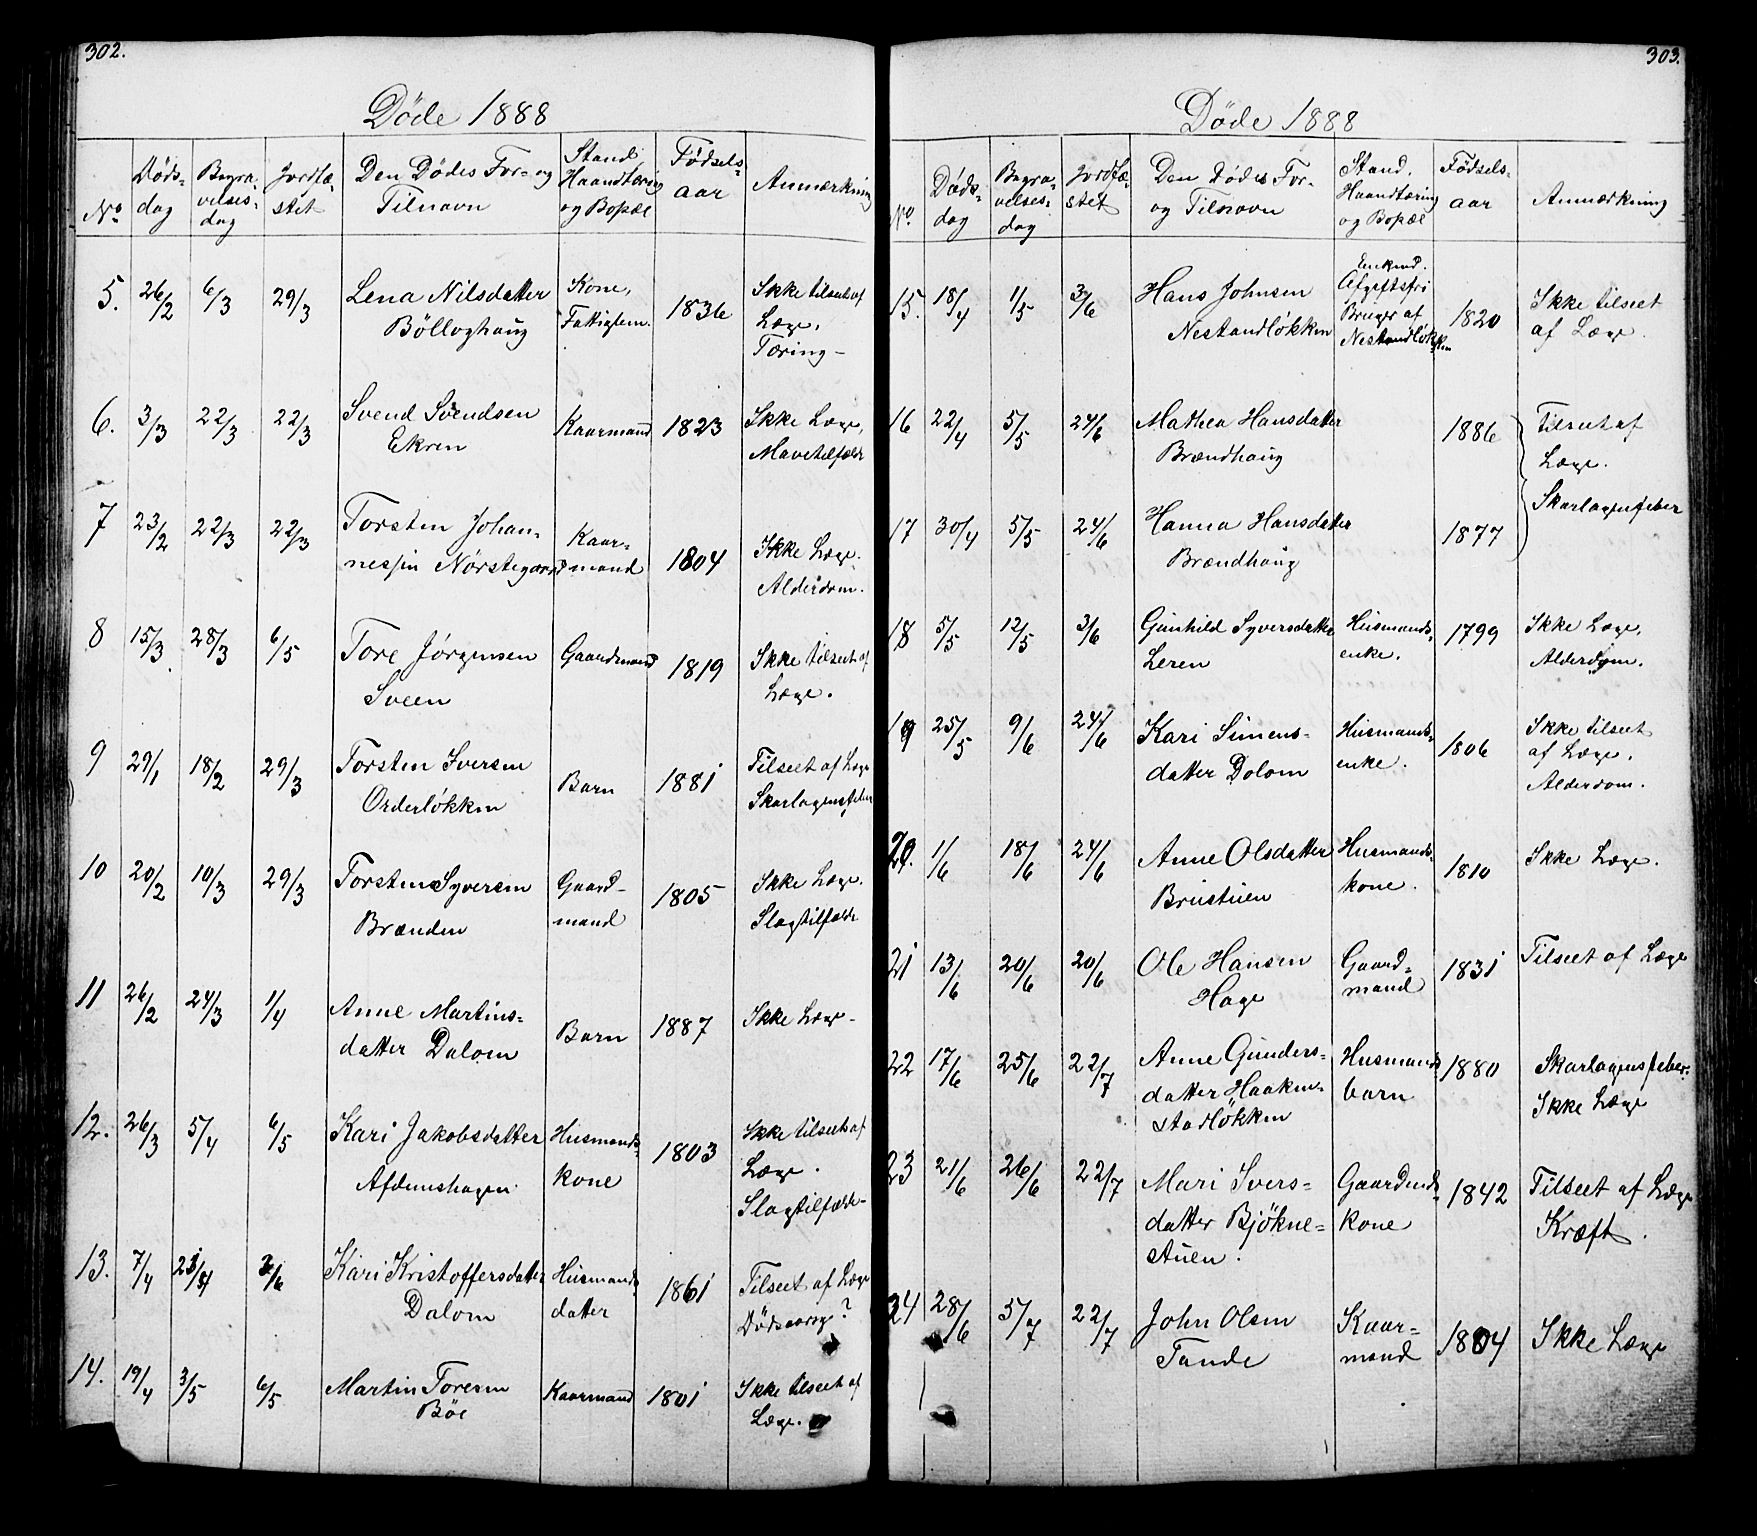 302.
Døde 1888
No Døds-dag Begravelses-dag Jordfæstet Den Dødes For- og Tilnavn Stand, Haandtering og Bopæl Fødsels-aar Anmærkning
5. 26/2 6/3 29/3 Lena Nilsdatter Kone, 1836 Ikke tilseet af
Bölloghaug Fattiglem. Læge.
Tæring-
6. 3/3 22/3 22/3 Svend Svendsen Kaarmand 1823 Ikke Læge.
Ekren Mavetilfælde
7 23/2 22/3 22/3 Torsten Johan- Kaar- 1804 Ikke Læge.
nessen Nørstegaard mand Alderdom.
8 15/3 28/3 6/5 Tore Jørgensen Gaardmand 1819 Ikke tilseet af
Sveen Læge.
9 29/1 18/2 29/3 Torsten Iversen Barn 1881 Tilseet af Læge
Orderløkken
10 20/2 10/3 29/3 Torsten Syversen Gaard- 1805 Ikke Læge.
Brænden mand Slagtilfælde
11 26/2 24/3 1/4 Anne Martins- Barn 1887 Ikke Læge-
datter Dalom
12. 26/3 5/4 6/5 Kari Jakobsdatter Husmands- 1803 Ikke tilseet af
kone Læge.
Slagtilfælde-
13. 7/4 Kari Kristoffersdatter Husmands 1861 Tilseet af Læge
Dalom datter Dödsaarsg?
14. 19/4 3/5 6/5 Martin Toresen Kaarmand 1801 Ikke tilseet af
Böe Læge.
303.
Døde 1888
No Døds-dag Begravelses-dag Jordfæstet Den Dødes For- og Tilnavn Stand, Haandtæring og Bopæl Fødsels-aar Anmærkning
15. 18/4 1/5 3/6 Hans Johnsen Enkemd. Afgiftsfri 1820 Ikke tilseet
Nestandløkken Bruger af Nestandløkken af Læge.
16 22/4 5/5 24/6 Mathea Hansdatter 1886 Tilseet af
Brændhaug Læge.
17 30/4 5/5 24/6 Hanna Hansdatter 1877 Skarlagensfeber
Brændhaug
18 5/5 12/5 3/6 Gunhild Syversdatter Husmands- 1799 Ikke Læge.
Leren enke. Alderdom.
19 25/5 9/6 24/6 Kari Simens- Husmands- 1806 Ikke tilseet
datter Dolom enke. af Læge.
Alderdom.
20. 1/6 18/6 24/6 Anne Olsdatter Husmands- 1810 Ikke Læge.
Brustuen kone.
21 13/6 20/6 20/6 Ole Hansen Gaard- 1831 Tilseet af Læge
Hage mand
22 17/6 25/6 22/7 Anne Gunders- Husmands 1880 Skarlagensfeber.
datter Haaken- barn Ikke Læge
stadløkken
23 21/6 26/6 22/7 Mari Ivers- Gaardmds- 1842 Tilseet af Læge
datter Bjökne- kone Kræft.
stuen.
24 28/6 5/7 22/7 John Olsen Kaar- 1804 Ikke Læge
Tande mand